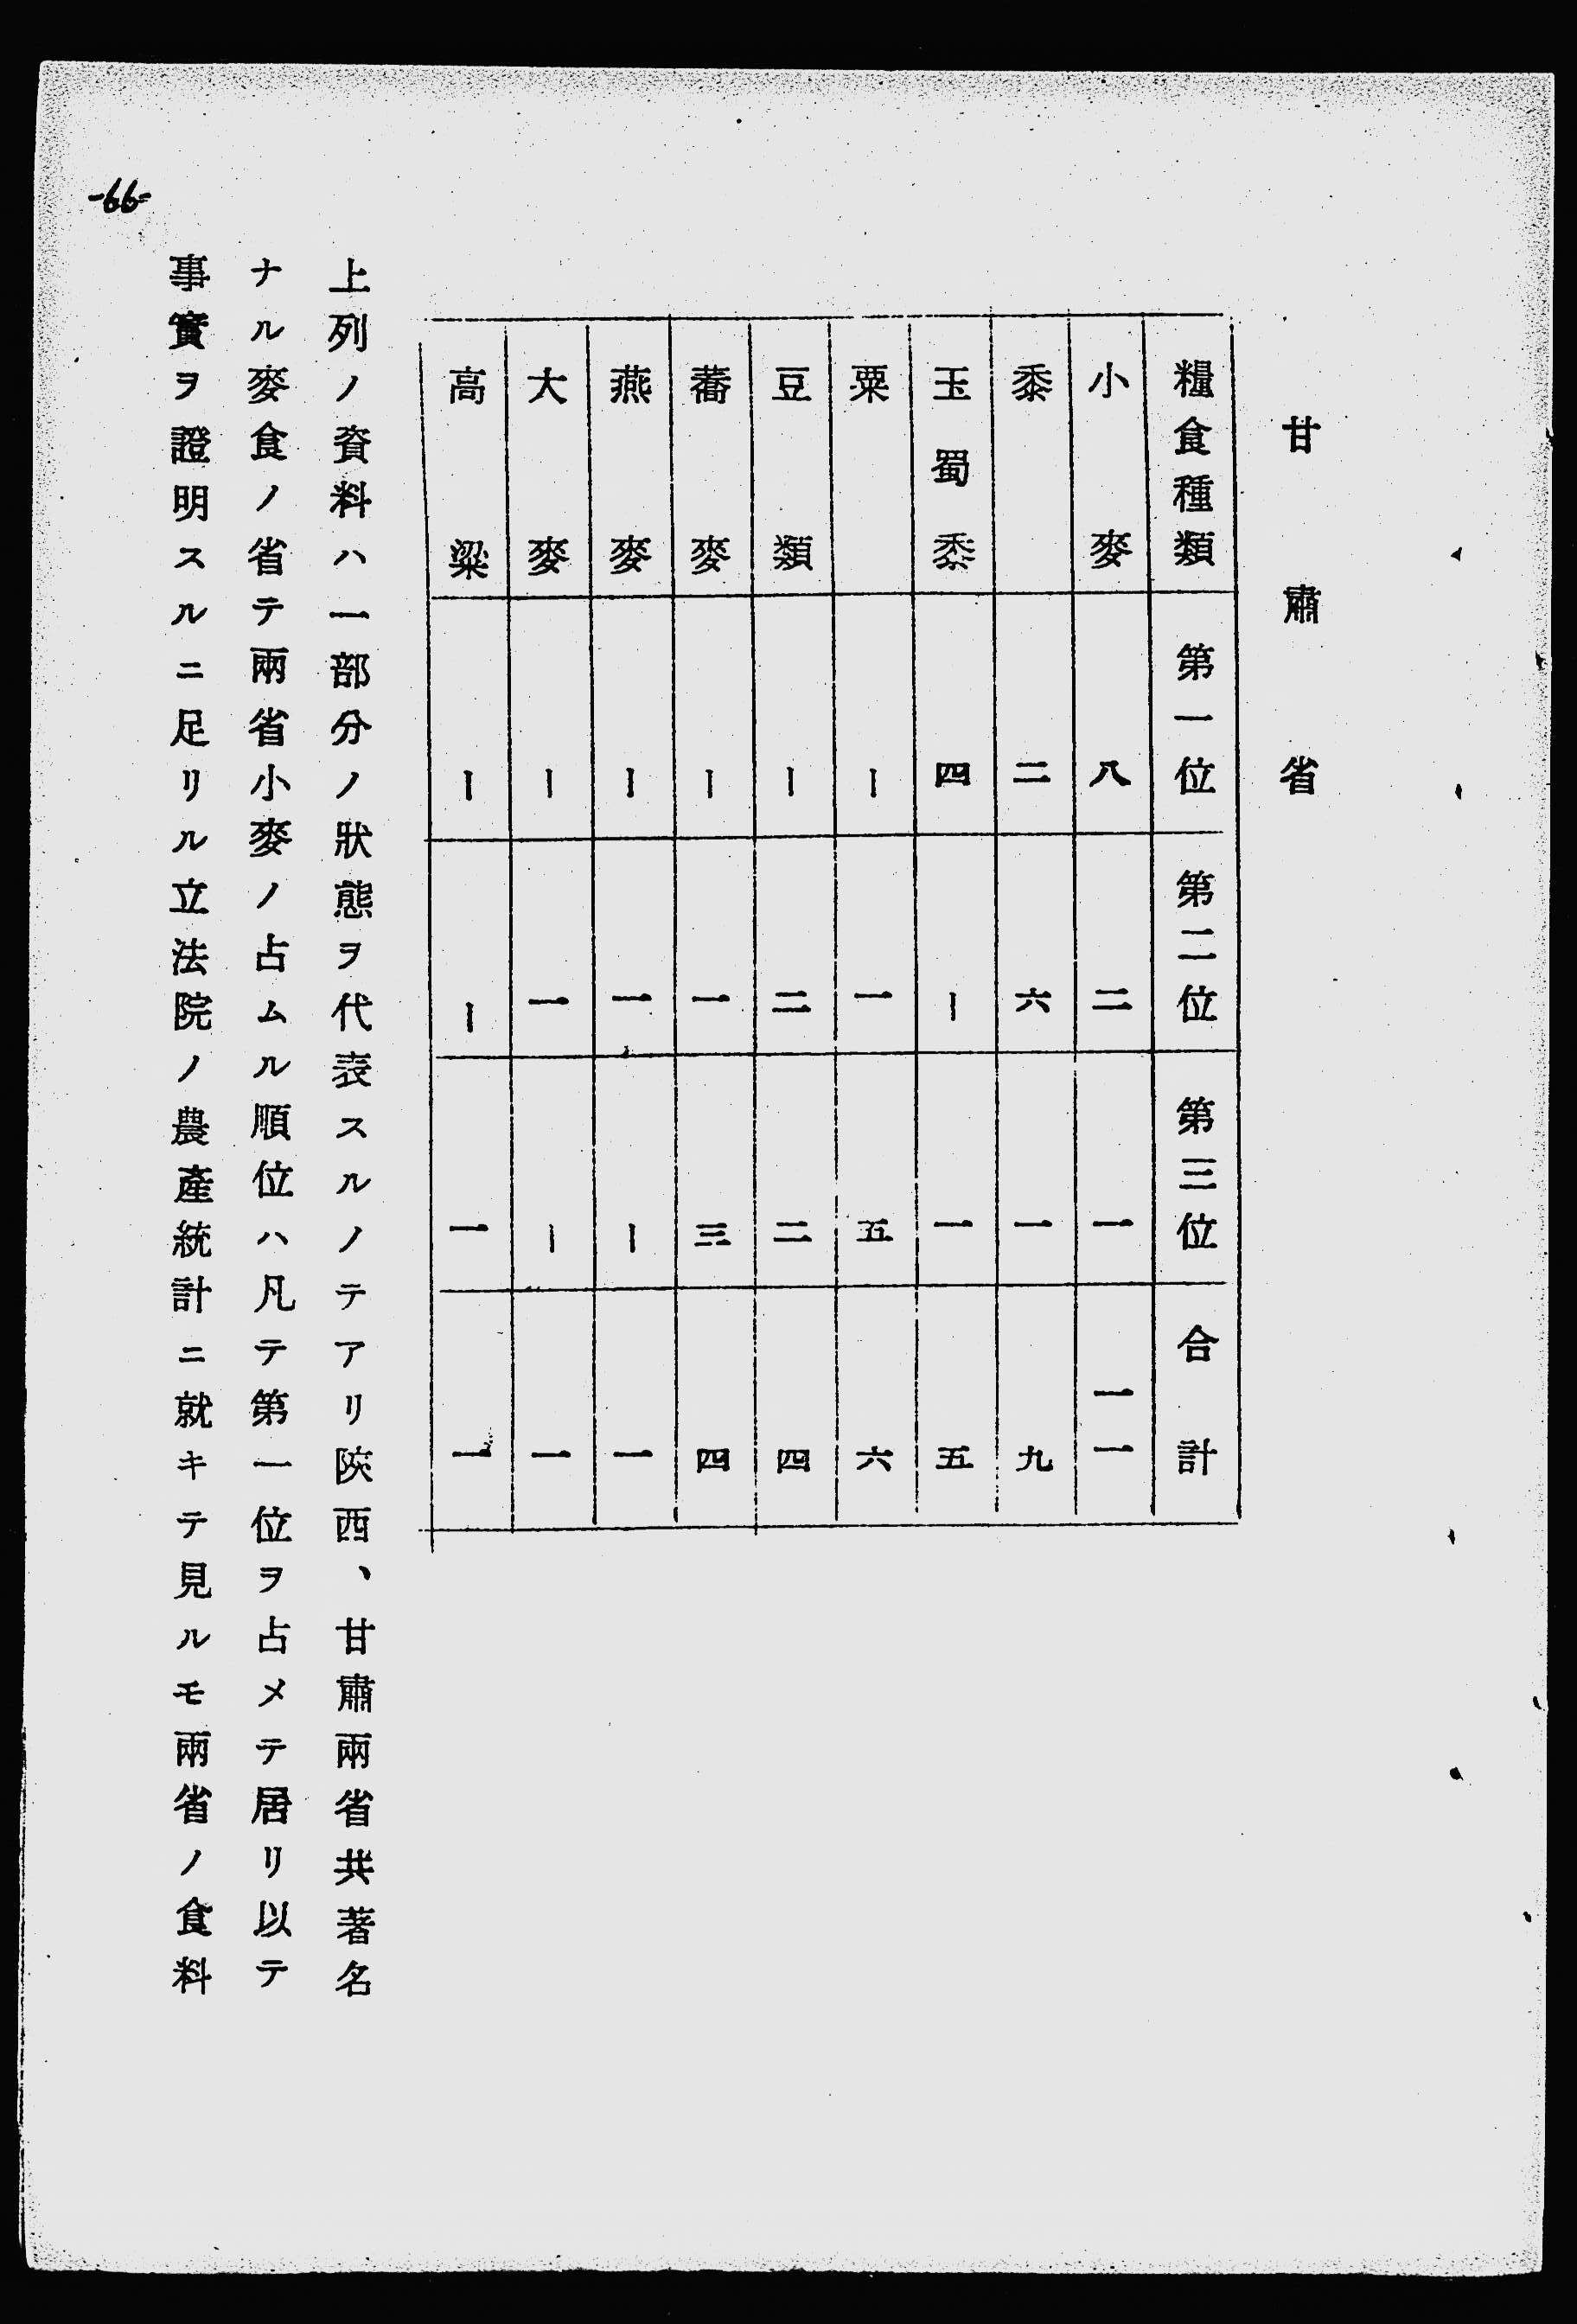 甘肅省
糧食種類 第一位 第二位 第三位 合計
小麥 八 二 一 一一
黍 二 六 一 九
玉蜀黍 四 ー 一 五
粟 ー 一 五 六
豆類 ー 二 二 四
蕎麥 ー 一 三 四
燕麥 ー 一 ー 一
大麥 ー 一 ー 一
高粱 ー ー 一 一
上列ノ資料ハ一部分ノ狀態ヲ代表スルノテアリ陝西、甘肅兩省共著名
ナル麥食ノ省テ兩省小麥ノ占ムル順位ハ凡テ第一位ヲ占メテ居リ以テ
事實ヲ證明スルニ足リル立法院ノ農產統計ニ就キテ見ルモ兩省ノ食料
-66-